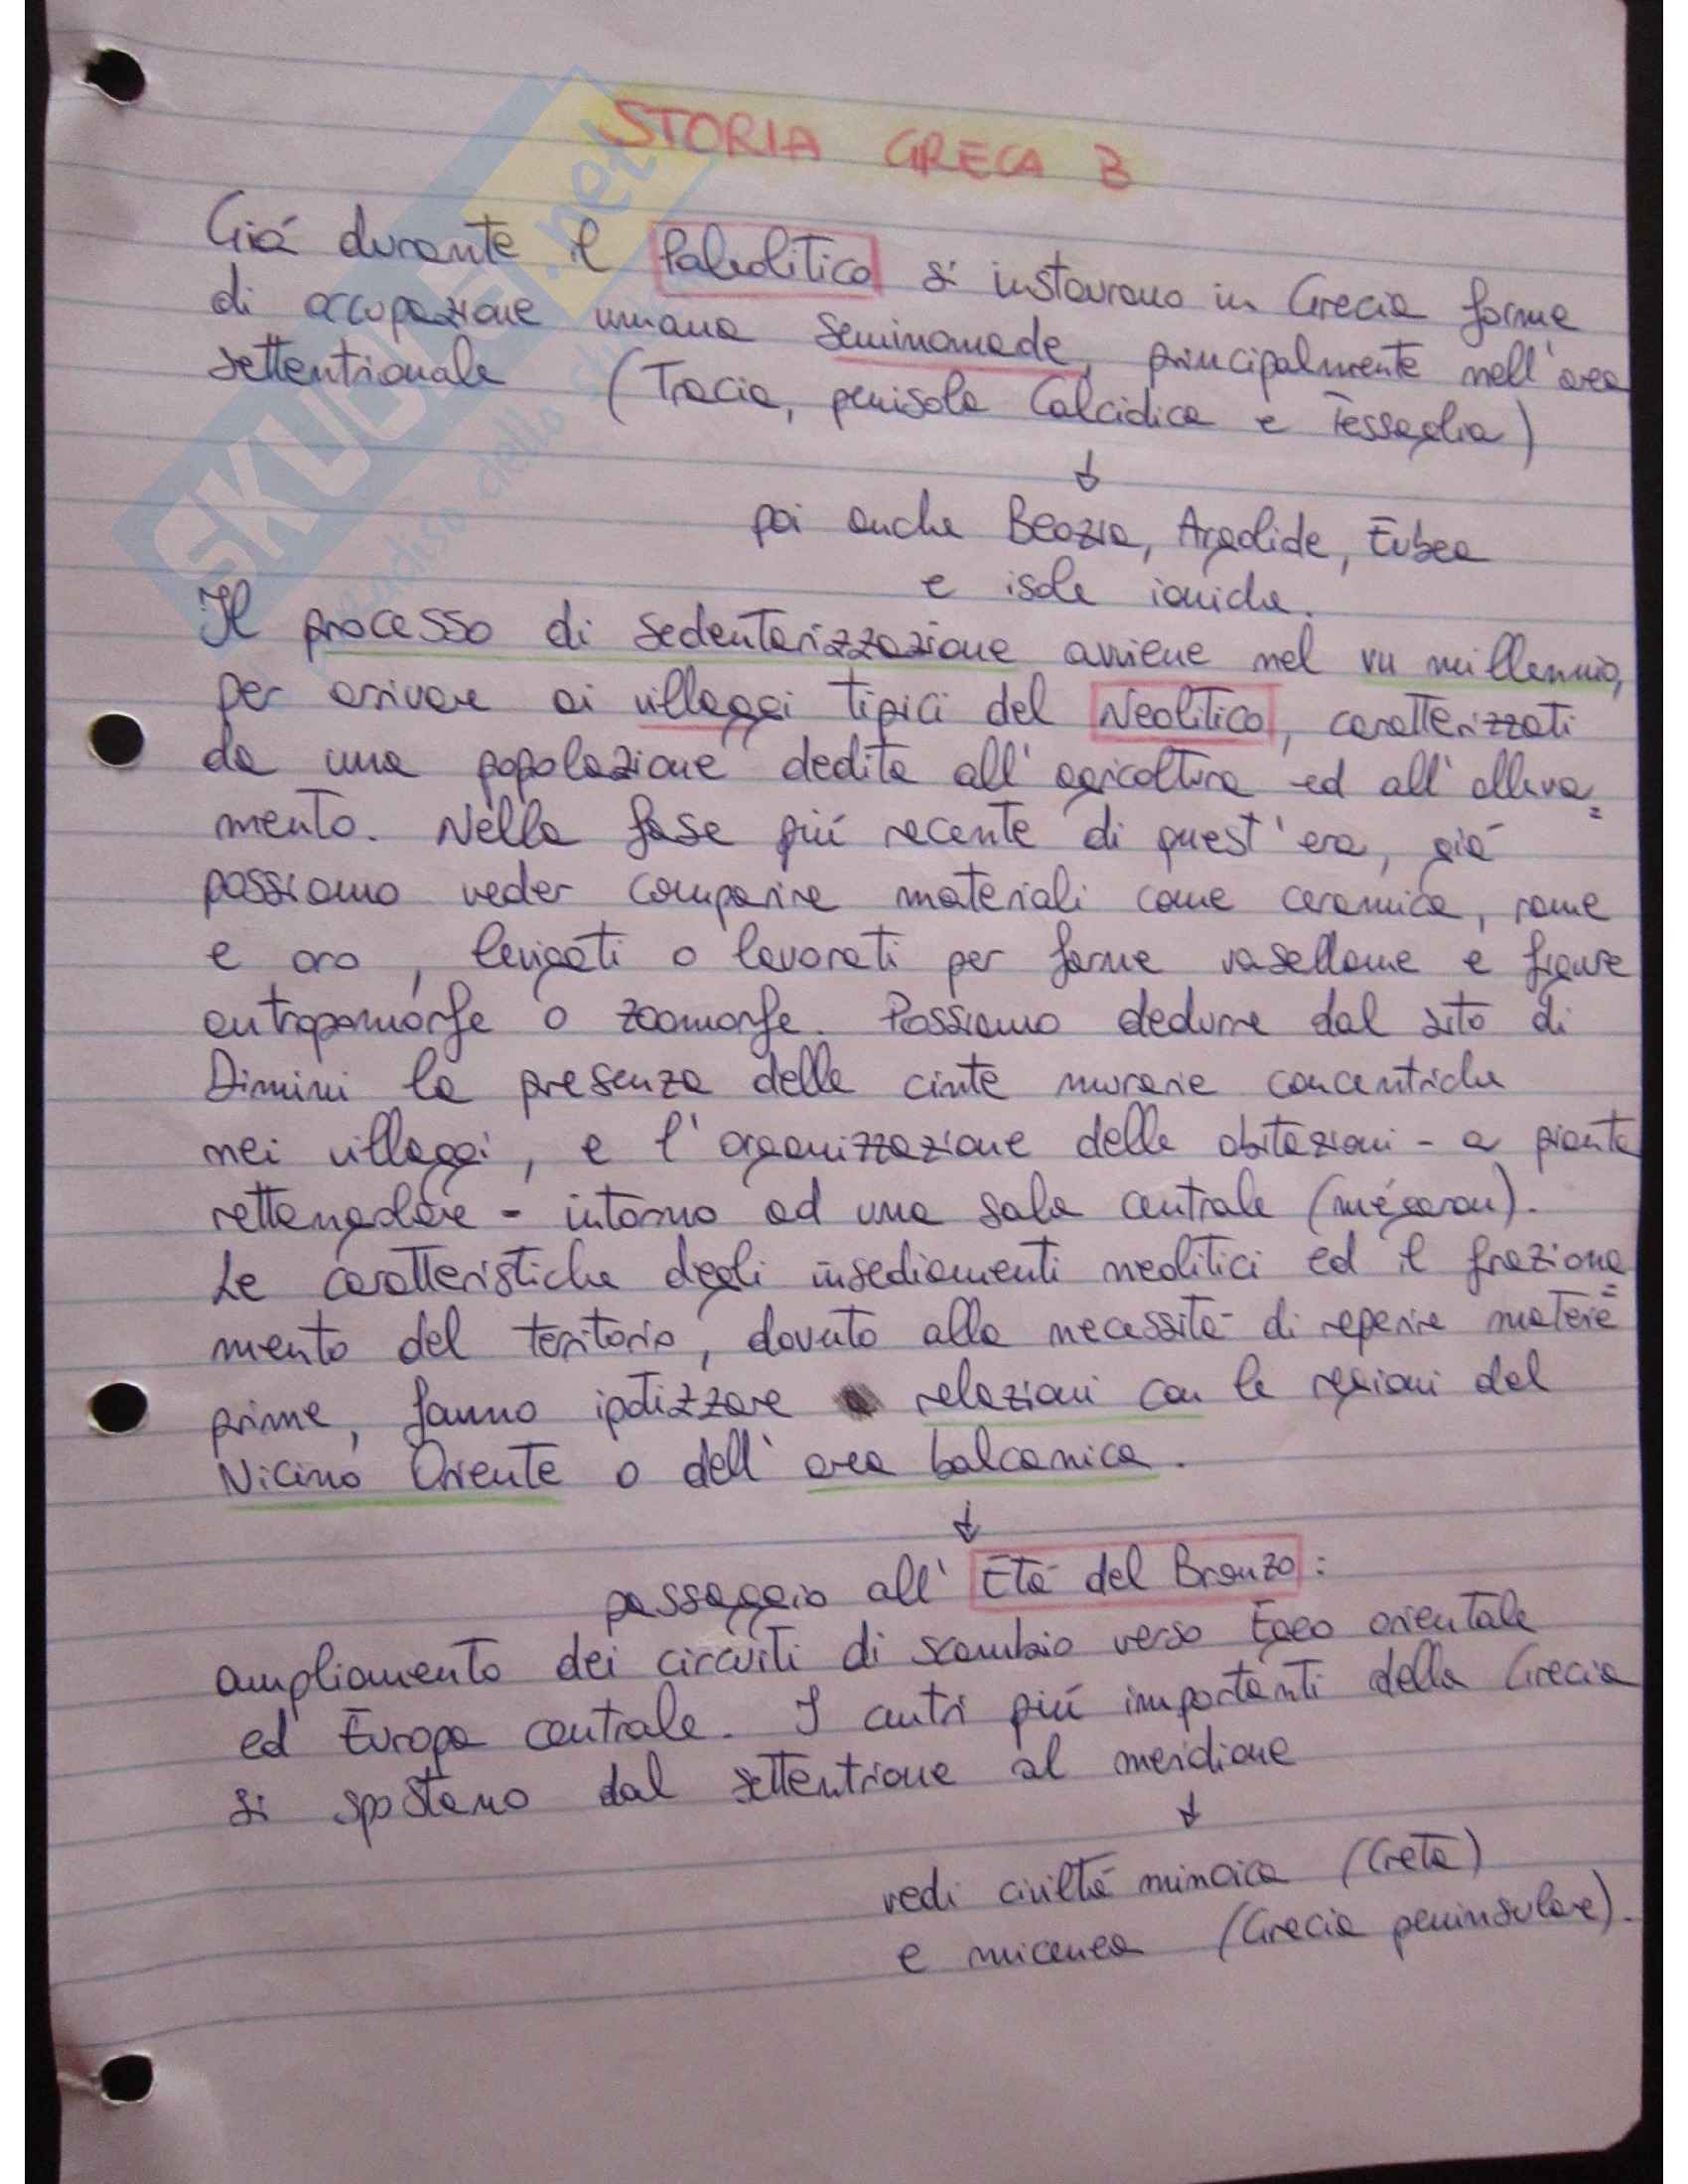 STORIA GRECA B
Giá durante il Paleolitico si instaurano in Grecia forme
di occupazione umana seminomade, principalmente nell'area
settentrionale (Tracia, penisola Calcidica e Tessaglia)
↓
poi anche Beozia, Argolide, Eubea
e isole ioniche.
Il processo di sedentarizzazione avviene nel VII millennio,
per arrivare ai villaggi tipici del Neolitico, caratterizzati
da una popolazione dedita all'agricoltura ed all'alleva=
mento. Nella fase piú recente di quest'era, giá
possiamo veder comparire materiali come ceramica, rame
e oro, levigati o lavorati per forme vasellame e figure
antropomorfe o zoomorfe. Possiamo dedurre dal sito di
Dimini la presenza delle cinte murarie concentriche
nei villaggi, e l'organizzazione delle abitazioni - a pianta
rettangolare - intorno ad una sala centrale (mégaron).
Le caratteristiche degli insediamenti neolitici ed il fraziona=
mento del territorio, dovuto alla necessitá di reperire materie
prime, fanno ipotizzare relazioni con le regioni del
Vicino Oriente o dell'area balcanica.
↓
passaggio all'Etá del Bronzo:
ampliamento dei circuiti di scambio verso Egeo orientale
ed Europa centrale. I centri piú importanti della Grecia
si spostano dal settentrione al meridione
↓
vedi civiltá minoica (Creta)
e micenea (Grecia peninsulare).
SKUOLA.net